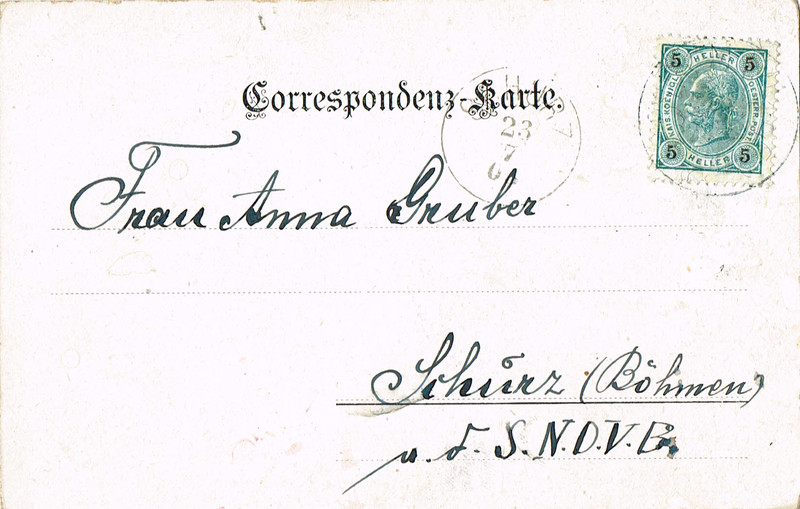 Correspondenz-Karte.
23
7
5 HELLER 5
KAIS. KOENIGL. OESTERR. POST
5 HELLER 5
Frau Anna Gruber
Schurz (Böhmen)
a. d. S.N.D.V.B.